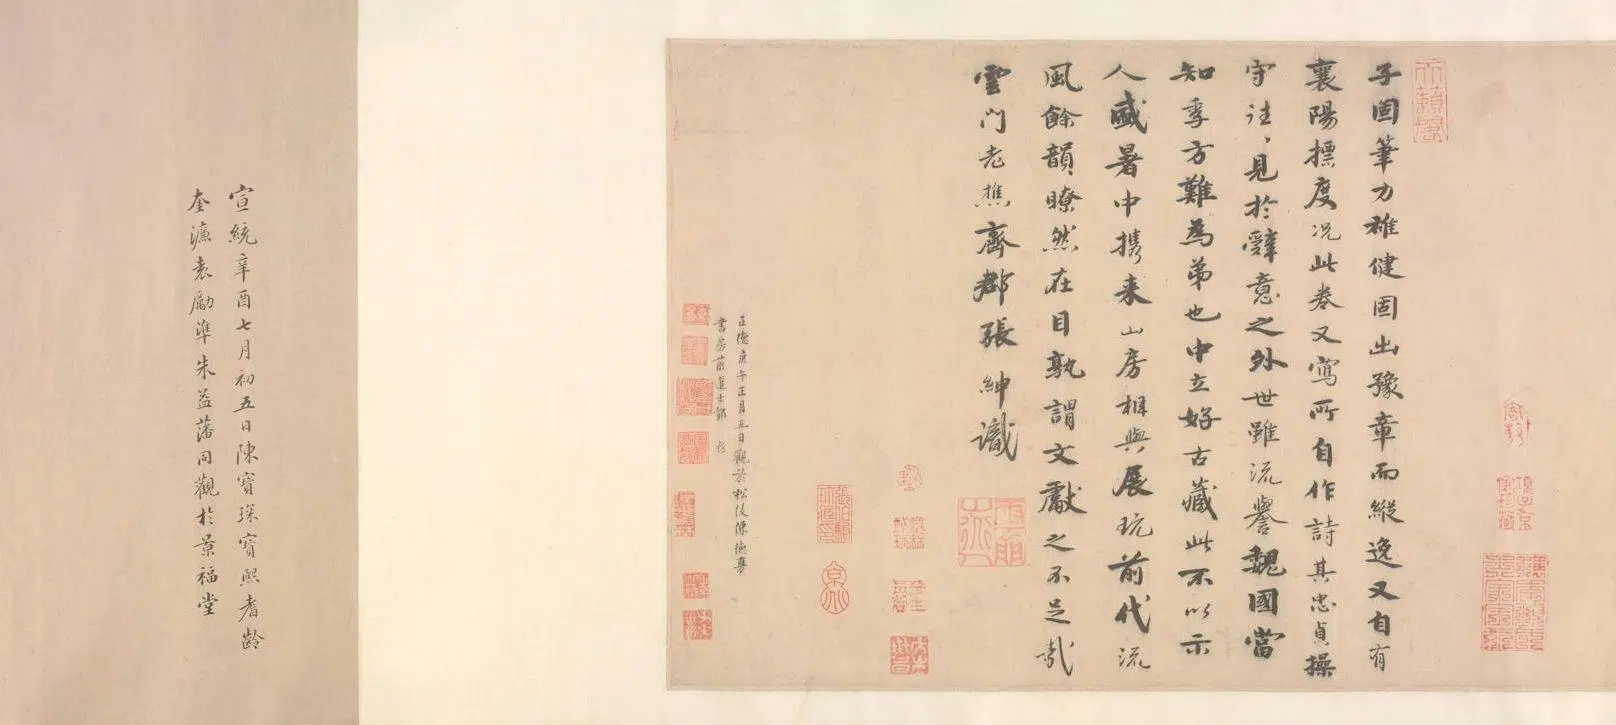 子固筆力雄健固出豫章而縱逸又自有
襄陽摽度况此卷又寫所自作詩其忠貞操
守往〻見於辭意之外世雖流譽魏國當
知季方難為弟也中立好古藏此不以示
人盛暑中携来山房相與展玩前代流
風餘韻瞭然在目孰謂文獻之不足哉
雲門老樵齊郡張紳識
正德庚午正月五日觀於松陵陳德
書房前進士
宣統辛酉七月初五日陳寶琛寶熙耆齡
奎濂袁勵準朱益藩同觀於景福堂
天籟閣